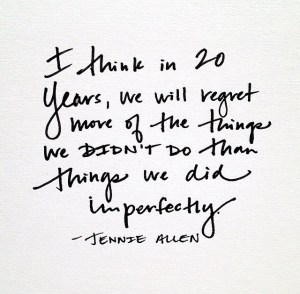 I think in 20
years, we will regret
more of the things
we DIDN'T DO than
things we did
imperfectly.
- JENNIE ALLEN